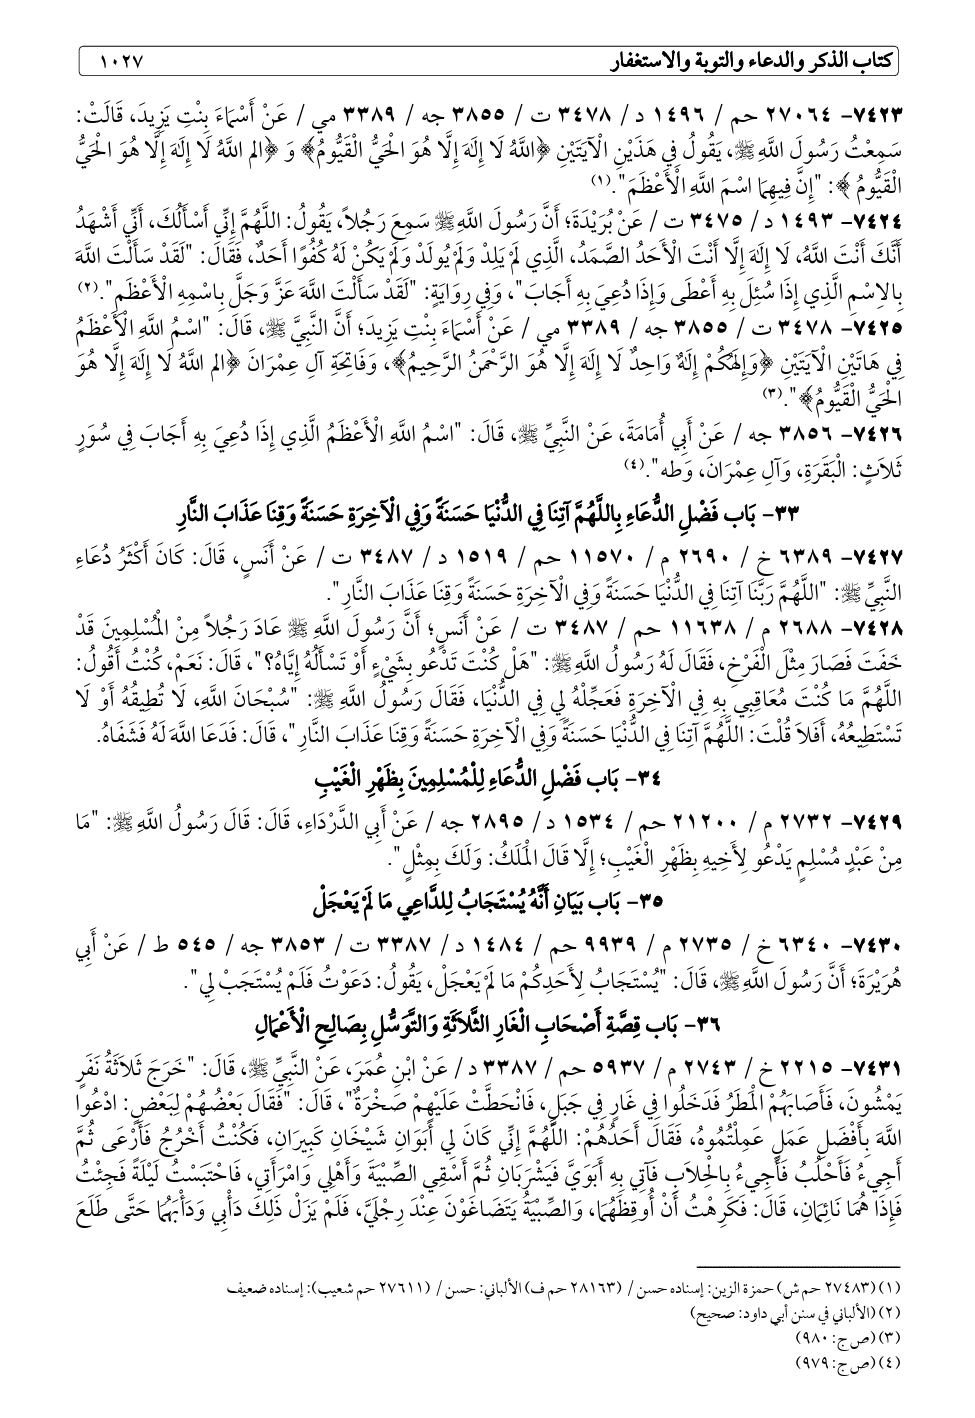 كتاب الذكر والدعاء والتوبة والاستغفار ١٠٢٧
٧٤٢٣- ٢٧٠٦٤ حم / ١٤٩٦ د / ٣٤٧٨ ت / ٣٨٥٥ جه / ٣٣٨٩ مي / عَنْ أَسْمَاءَ بِنْتِ يَزِيدَ، قَالَتْ:
سَمِعْتُ رَسُولَ اللَّهِ ﷺ، يَقُولُ فِي هَذَيْنِ الْآيَتَيْنِ ﴿اللَّهُ لَا إِلَهَ إِلَّا هُوَ الْحَيُّ الْقَيُّومُ﴾ وَ ﴿الم اللَّهُ لَا إِلَهَ إِلَّا هُوَ الْحَيُّ
الْقَيُّومُ ﴾: "إِنَّ فِيهِمَا اسْمَ اللَّهِ الْأَعْظَمَ".(١)
٧٤٢٤- ١٤٩٣ د/ ٣٤٧٥ ت / عَنْ بُرَيْدَةَ؛ أَنَّ رَسُولَ اللَّهِ ﷺ سَمِعَ رَجُلاً، يَقُولُ: اللَّهُمَّ إِنِّي أَسْأَلُكَ، أَنِّي أَشْهَدُ
أَنَّكَ أَنْتَ اللَّهُ، لَا إِلَهَ إِلَّا أَنْتَ الْأَحَدُ الصَّمَدُ، الَّذِي لَمْ يَلِدْ وَلَمْ يُولَدْ وَلَمْ يَكُنْ لَهُ كُفُوًا أَحَدٌ، فَقَالَ: "لَقَدْ سَأَلْتَ اللَّهَ
بِالِاسْمِ الَّذِي إِذَا سُئِلَ بِهِ أَعْطَى وَإِذَا دُعِيَ بِهِ أَجَابَ"، وَفِي رِوَايَةٍ: "لَقَدْ سَأَلْتَ اللَّهَ عَزَّ وَجَلَّ بِاسْمِهِ الْأَعْظَمِ".(٢)
٧٤٢٥- ٣٤٧٨ ت / ٣٨٥٥ جه / ٣٣٨٩ مي / عَنْ أَسْمَاءَ بِنْتِ يَزِيدَ؛ أَنَّ النَّبِيَّ ﷺ، قَالَ: "اسْمُ اللَّهِ الْأَعْظَمُ
فِي هَاتَيْنِ الْآيَتَيْنِ ﴿وَإِلَهُكُمْ إِلَهٌ وَاحِدٌ لَا إِلَهَ إِلَّا هُوَ الرَّحْمَنُ الرَّحِيمُ﴾، وَفَاتِحَةِ آلِ عِمْرَانَ ﴿الم اللَّهُ لَا إِلَهَ إِلَّا هُوَ
الْحَيُّ الْقَيُّومُ﴾".(٣)
٧٤٢٦- ٣٨٥٦ جه / عَنْ أَبِي أُمَامَةَ، عَنْ النَّبِيِّ ﷺ، قَالَ: "اسْمُ اللَّهِ الْأَعْظَمُ الَّذِي إِذَا دُعِيَ بِهِ أَجَابَ فِي سُوَرٍ
ثَلَاثٍ: الْبَقَرَةِ، وَآلِ عِمْرَانَ، وَطه".(٤)
٣٣- بَاب فَضْلِ الدُّعَاءِ بِاللَّهُمَّ آتِنَا فِي الدُّنْيَا حَسَنَةً وَفِي الْآخِرَةِ حَسَنَةً وَقِنَا عَذَابَ النَّارِ
٧٤٢٧- ٦٣٨٩ خ / ٢٦٩٠ م/ ١١٥٧٠ حم / ١٥١٩ د/ ٣٤٨٧ ت / عَنْ أَنَسٍ، قَالَ: كَانَ أَكْثَرُ دُعَاءِ
النَّبِيِّ ﷺ: "اللَّهُمَّ رَبَّنَا آتِنَا فِي الدُّنْيَا حَسَنَةً وَفِي الْآخِرَةِ حَسَنَةً وَقِنَا عَذَابَ النَّارِ".
٧٤٢٨- ٢٦٨٨ م / ١١٦٣٨ حم / ٣٤٨٧ ت / عَنْ أَنَسٍ؛ أَنَّ رَسُولَ اللَّهِ ﷺ عَادَ رَجُلاً مِنْ الْمُسْلِمِينَ قَدْ
خَفَتَ فَصَارَ مِثْلَ الْفَرْخِ، فَقَالَ لَهُ رَسُولُ اللَّهِ ﷺ: "هَلْ كُنْتَ تَدْعُو بِشَيْءٍ أَوْ تَسْأَلُهُ إِيَّاهُ؟"، قَالَ: نَعَمْ، كُنْتُ أَقُولُ:
اللَّهُمَّ مَا كُنْتَ مُعَاقِبِي بِهِ فِي الْآخِرَةِ فَعَجِّلْهُ لِي فِي الدُّنْيَا، فَقَالَ رَسُولُ اللَّهِ ﷺ: "سُبْحَانَ اللَّهِ، لَا تُطِيقُهُ أَوْ لَا
تَسْتَطِيعُهُ، أَفَلاَ قُلْتَ: اللَّهُمَّ آتِنَا فِي الدُّنْيَا حَسَنَةً وَفِي الْآخِرَةِ حَسَنَةً وَقِنَا عَذَابَ النَّارِ"، قَالَ: فَدَعَا اللَّهَ لَهُ فَشَفَاهُ.
٣٤- بَاب فَضْلِ الدُّعَاءِ لِلْمُسْلِمِينَ بِظَهْرِ الْغَيْبِ
٧٤٢٩- ٢٧٣٢ م / ٢١٢٠٠ حم / ١٥٣٤ د/ ٢٨٩٥ جه / عَنْ أَبِي الدَّرْدَاءِ، قَالَ: قَالَ رَسُولُ اللَّهِ ﷺ: "مَا
مِنْ عَبْدٍ مُسْلِمٍ يَدْعُو لِأَخِيهِ بِظَهْرِ الْغَيْبِ؛ إِلَّا قَالَ الْمَلَكُ: وَلَكَ بِمِثْلٍ".
٣٥- بَاب بَيَانِ أَنَّهُ يُسْتَجَابُ لِلدَّاعِي مَا لَمْ يَعْجَلْ
٧٤٣٠- ٦٣٤٠ خ / ٢٧٣٥ م / ٩٩٣٩ حم / ١٤٨٤ د/ ٣٣٨٧ ت / ٣٨٥٣ جه / ٥٤٥ ط / عَنْ أَبِي
هُرَيْرَةَ؛ أَنَّ رَسُولَ اللَّهِ ﷺ، قَالَ: "يُسْتَجَابُ لِأَحَدِكُمْ مَا لَمْ يَعْجَلْ، يَقُولُ: دَعَوْتُ فَلَمْ يُسْتَجَبْ لِي".
٣٦- بَاب قِصَّةِ أَصْحَابِ الْغَارِ الثَّلَاثَةِ وَالتَّوَسُّلِ بِصَالِحِ الْأَعْمَالِ
٧٤٣١- ٢٢١٥ خ / ٢٧٤٣ م / ٥٩٣٧ حم / ٣٣٨٧ د / عَنْ ابْنِ عُمَرَ، عَنْ النَّبِيِّ ﷺ، قَالَ: "خَرَجَ ثَلَاثَةُ نَفَرٍ
يَمْشُونَ، فَأَصَابَهُمُ الْمَطَرُ فَدَخَلُوا فِي غَارٍ فِي جَبَلٍ، فَانْحَطَّتْ عَلَيْهِمْ صَخْرَةٌ"، قَالَ: "فَقَالَ بَعْضُهُمْ لِبَعْضٍ: ادْعُوا
اللَّهَ بِأَفْضَلِ عَمَلٍ عَمِلْتُمُوهُ، فَقَالَ أَحَدُهُمْ: اللَّهُمَّ إِنِّي كَانَ لِي أَبَوَانِ شَيْخَانِ كَبِيرَانِ، فَكُنْتُ أَخْرُجُ فَأَرْعَى ثُمَّ
أَجِيءُ فَأَحْلُبُ فَأَجِيءُ بِالْحِلَابِ فَآتِي بِهِ أَبَوَيَّ فَيَشْرَبَانِ ثُمَّ أَسْقِي الصِّبْيَةَ وَأَهْلِي وَامْرَأَتِي، فَاحْتَبَسْتُ لَيْلَةً فَجِئْتُ
فَإِذَا هُمَا نَائِمَانِ، قَالَ: فَكَرِهْتُ أَنْ أُوقِظَهُمَا، وَالصِّبْيَةُ يَتَضَاغَوْنَ عِنْدَ رِجْلَيَّ، فَلَمْ يَزَلْ ذَلِكَ دَأْبِي وَدَأْبُهُمَا حَتَّى طَلَعَ
(١) (٢٧٤٨٣ حم ش) حمزة الزين: إسناده حسن / (٢٨١٦٣ حم ف) الألباني: حسن / (٢٧٦١١ حم شعيب): إسناده ضعيف
(٢) (الألباني في سنن أبي داود: صحيح)
(٣) (ص ج: ٩٨٠)
(٤) (ص ج: ٩٧٩)